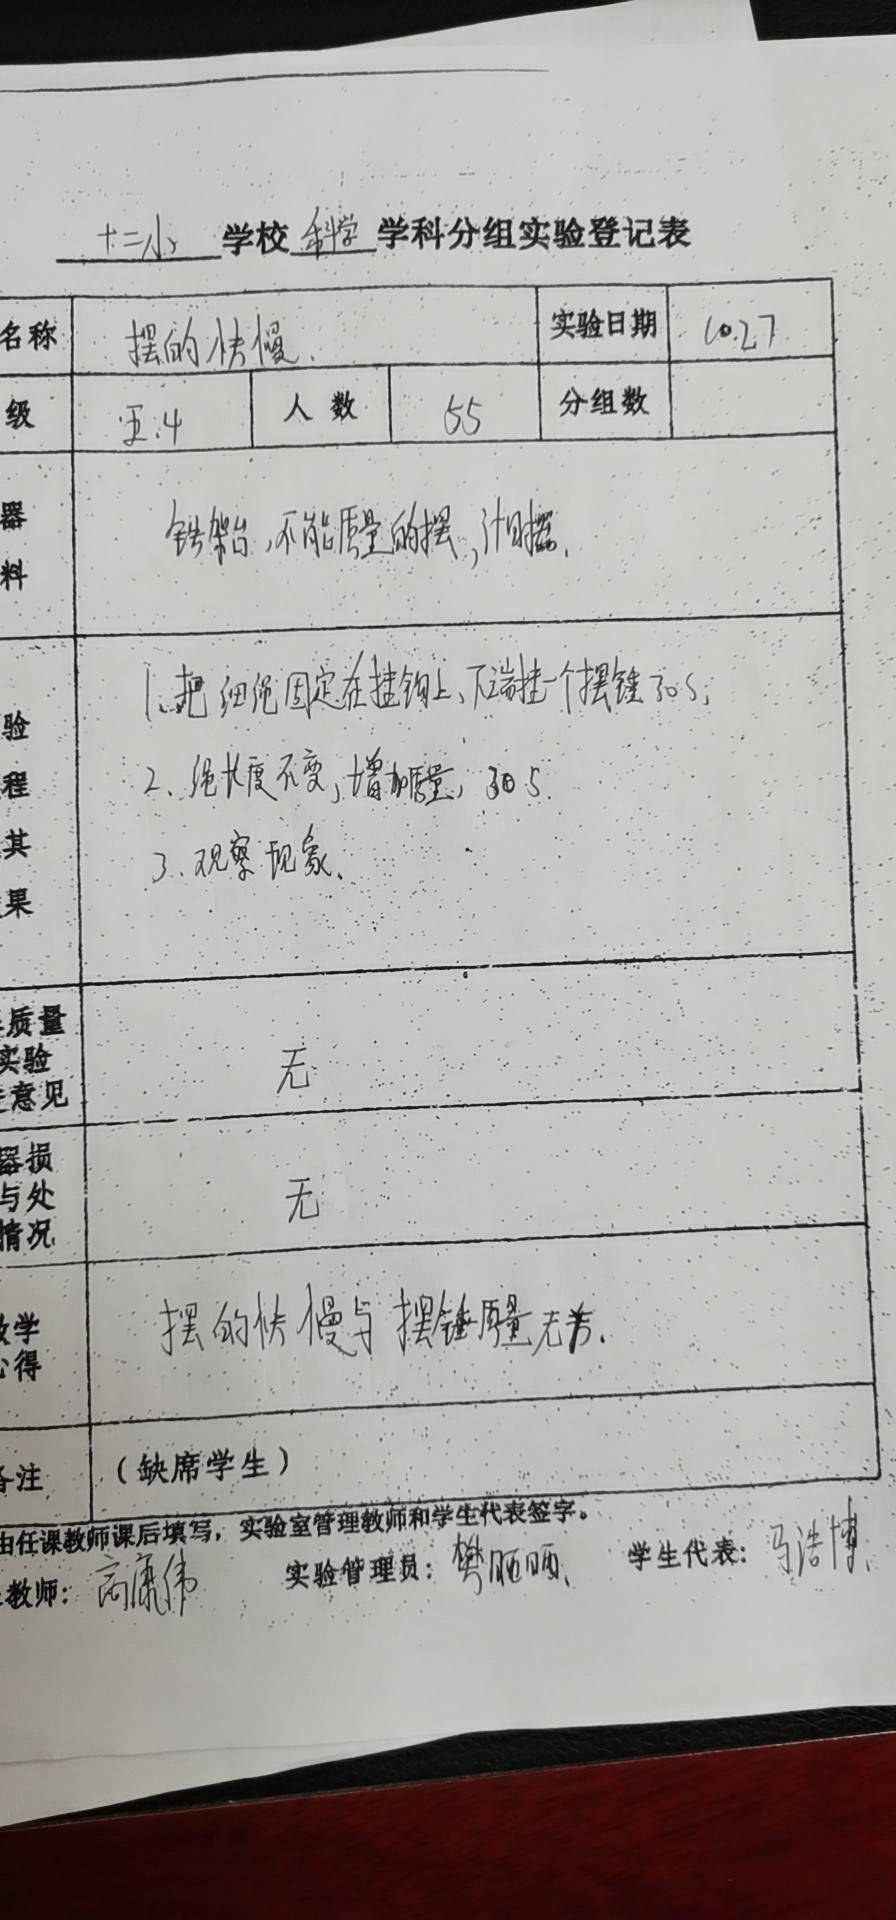 十二小 学校 科学 学科分组实验登记表
名称 摆的快慢. 实验日期 10.27
级 五.4 人数 55 分组数
器 料
铁架台,不能质量的摆,计时摆.
验 程 其 果
1、把细绳固定在挂钩上、下端挂一个摆锤30s;
2、绳长度不变,增加质量,30s
3、观察现象.
质量
实验
意见
无
器损
与处
情况
无
教学
心得
摆的快慢与摆锤质量无关.
备注 (缺席学生)
由任课教师课后填写,实验室管理教师和学生代表签字。
教师: 高康伟 实验管理员: 樊 学生代表: 马浩博.